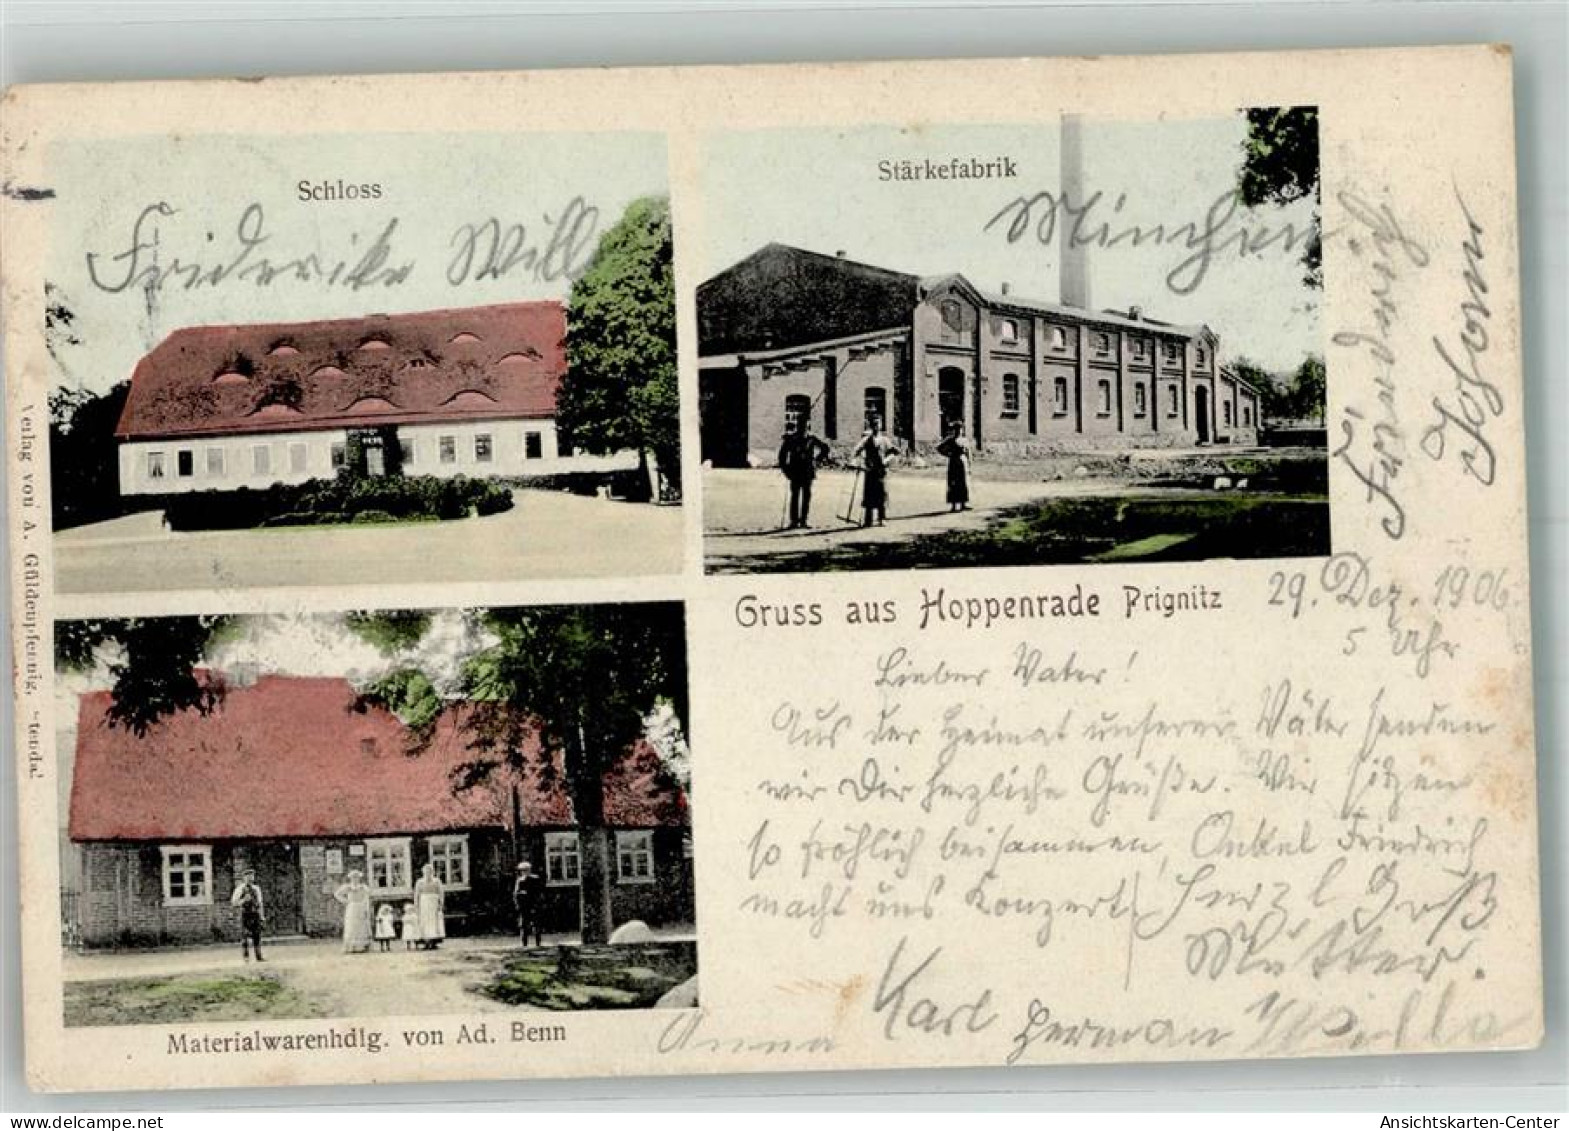 Schloss
Friderike Will
Stärkefabrik
Minchen
Friedrich
Johann
Verlag von A. Güldenpfennig, Stendal
Gruss aus Hoppenrade Prignitz
29. Dez. 1906
5 Uhr
Lieber Vater!
Aus der Heimat unserer Väter senden
wir Dir herzliche Grüße. Wir sitzen
so fröhlich beisammen, Onkel Friedrich
macht uns Konzert. Herzl. Gruß
Mutter.
Karl
Anna
Herman
Willa
Materialwarenhdlg. von Ad. Benn
Ansichtskarten-Center